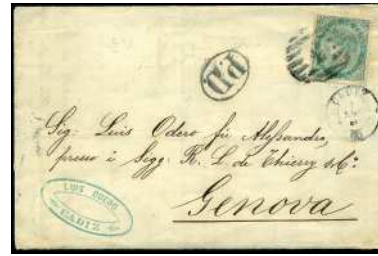 PD
CADIZ
Sig: Luis Odero fu Alessandro,
presso i Sigg. R. L. de Thierry & Cº
Genova
LUIS ODERO
CADIZ